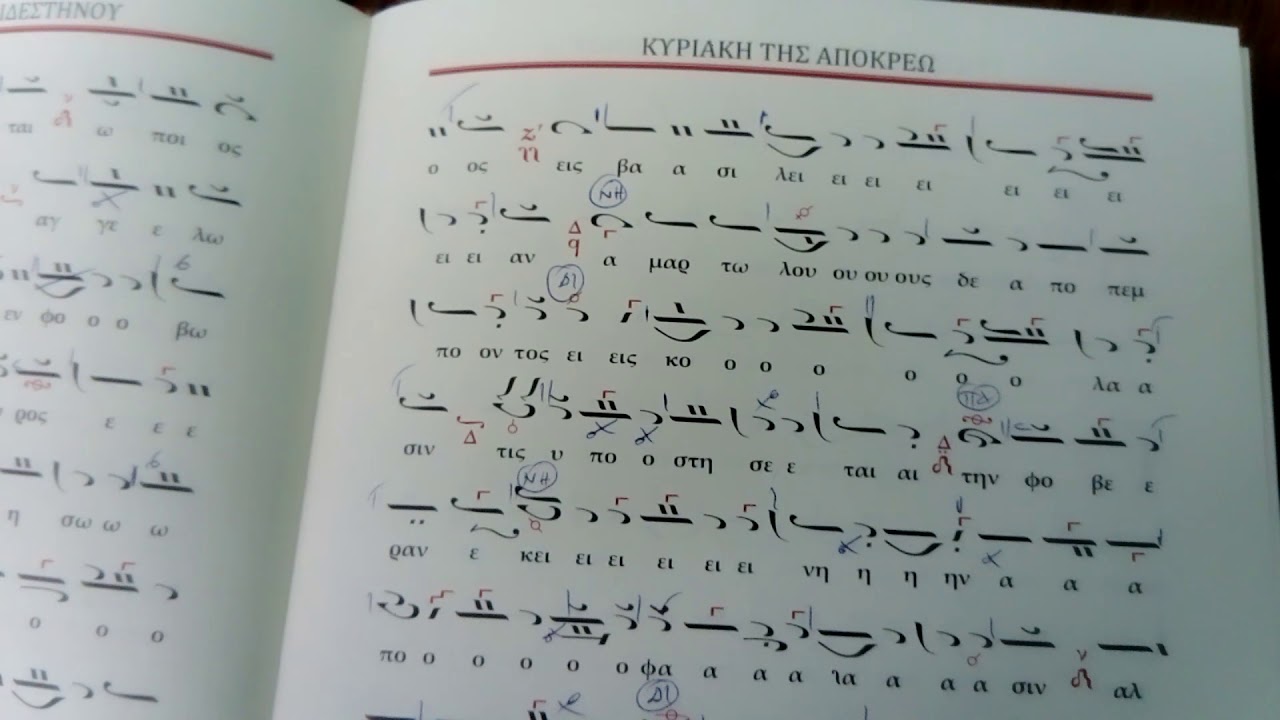 ΙΔΕΣΤΗΝΟΥ
ται ω ποι ος
αγ γε ε λω
εν φο ο ο βω
ρος ε ε ε
η σω ω ω
ο ο ο
ΚΥΡΙΑΚΗ ΤΗΣ ΑΠΟΚΡΕΩ
ο ος εις βα α σι λει ει ει ει ει ει ει
ΝΗ
ει ει αν α μαρ τω λου ου ου ους δε α πο πεμ
ΔΙ
πο ον τος ει εις κο ο ο ο ο ο ο λα α
ΠΑ
σιν τις υ πο ο στη σε ε ται αι την φο βε ε
ΝΗ
ραν ε κει ει ει ει ει ει νη η η ην α α α
πο ο ο ο ο ο φα α α α ια α α α σιν αλ
ΔΙ